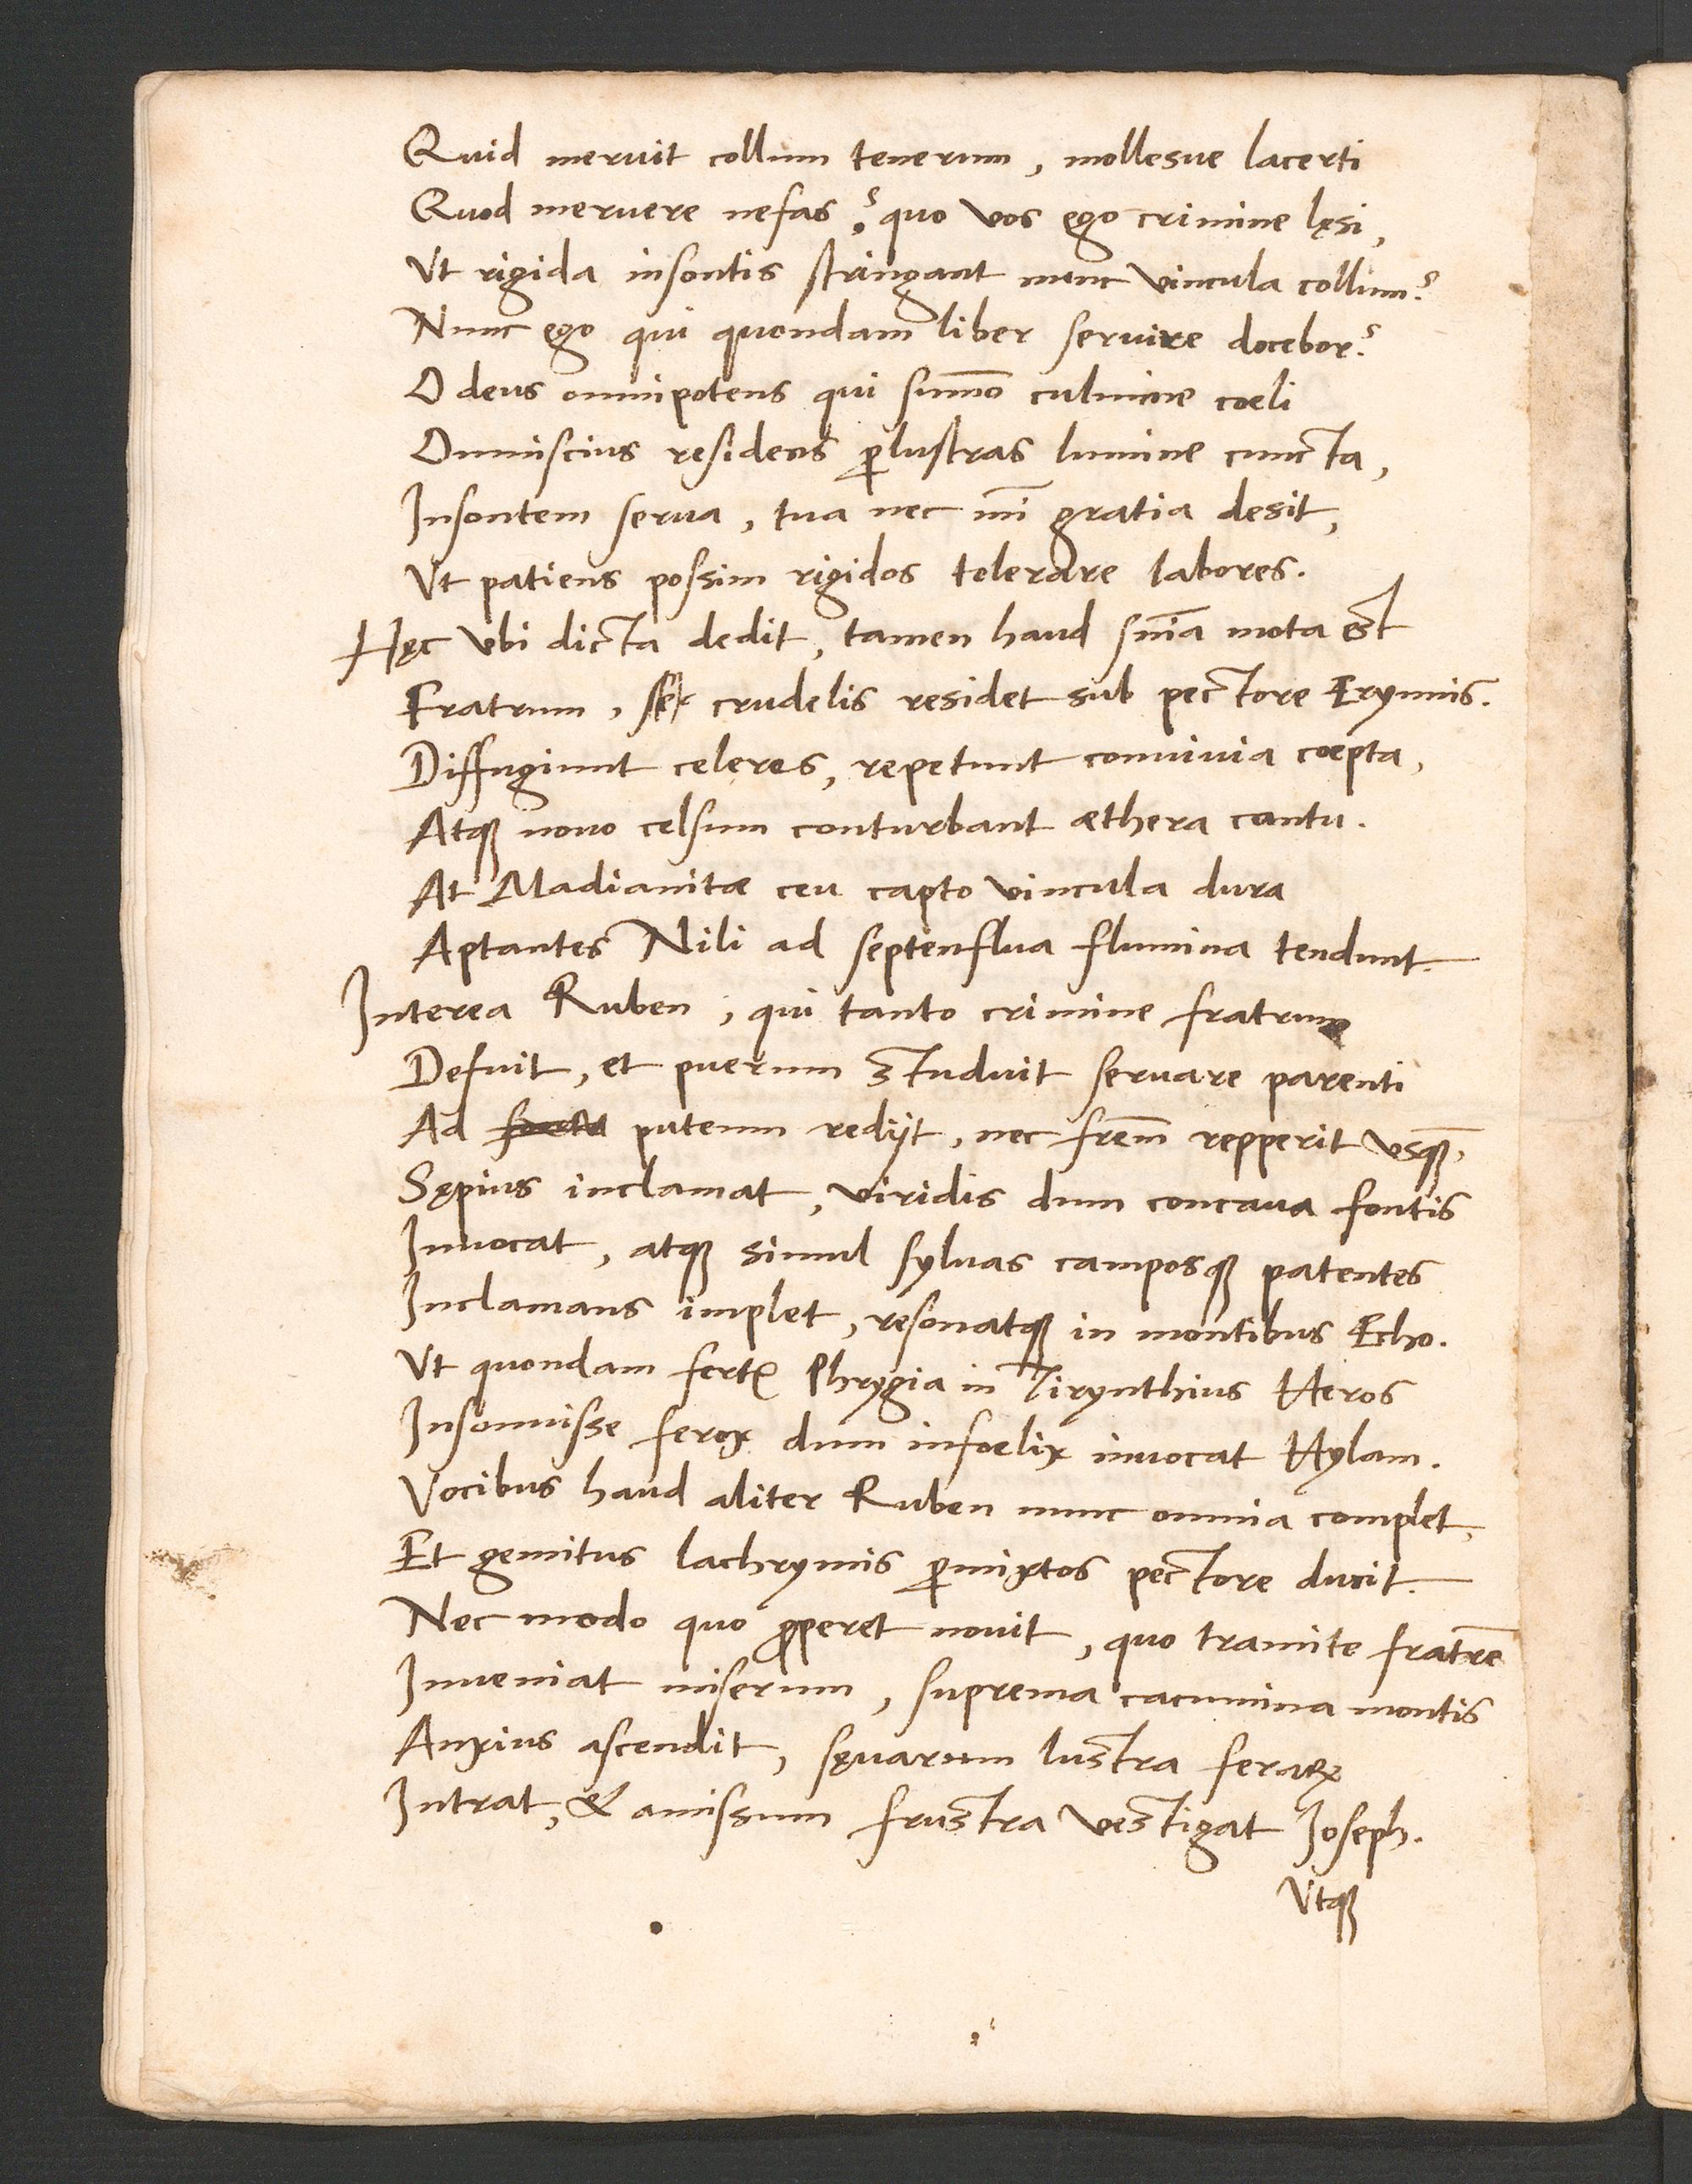 Quid meruit collum tenerum, mollesue lacerti
Quod meruere nefas? quo vos ego crimine lęsi,
Vt rigida insontis stringant nunc vincula collum?
Nunc ego qui quondam liber seruire docebor?
O deus omnipotens qui sum̄o culmine coeli
Omniscius residens ꝑlustras lumine cuncta,
Insontem serua, tua nec mī gratia desit,
Vt patiens possim rigidos tolerare labores.
Hęc vbi dicta dedit, tamen haud sn̄ia mota est
Fratrum, sed crudelis residet sub pectore Erynnis.
Diffugiunt celeres, repetunt conuiuia coepta,
Atqꝫ nouo celsum conturbant æthera cantu.
At Madianitæ ceu capto vincula dura
Aptantes Nili ad septenflua flumina tendunt.
Interea Ruben, qui tanto crimine fratrum
Defuit, et puerum studuit seruare parenti
Ad puteum rediit, nec frem̄ repperit vsqꝫ̄.
Sępius inclamat, viridis dum concaua fontis
Inuocat, atqꝫ simul syluas camposqꝫ patentes
Inclamans implet, resonatqꝫ in montibus Echo.
Vt quondam fertꝛ Phrygia in Tirynthius Heros
Insonuisse ferox dum infoelix inuocat Hylam.
Vocibus haud aliter Ruben nunc omnia complet,
Et gemitus lachrymis ꝑmixtos pectore ducit.
Nec modo quo ꝓperet nouit, quo tramite fratrē
Inueniat miserum, suprema cacumina montis
Anxius ascendit, sęuarum lustra feraꝝ
Intrat, & amissum frustra vestigat Ioseph.
Vtqꝫ